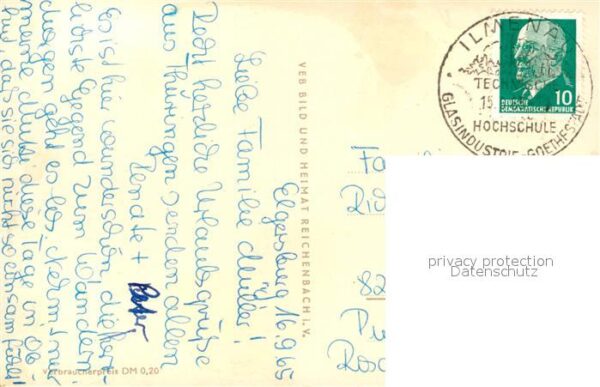 Elgersburg 16.9.65
Liebe Familie Müller!
Recht herzliche Urlaubsgrüße
aus Thüringen senden allen
Renate +
Es ist hie wunderschön, die
liebste Gegend zum Wandern
morgen geht es los.
diese Tage in
daß sie sich nicht so einsam fühlt
Verbraucherpreis DM 0,20
VEB BILD UND HEIMAT REICHENBACH i. V.
ILMENAU
TECHN
15.
HOCHSCHULE
GLASINDUSTRIE-GOETHESTADT
DEUTSCHE
DEMOKRATISCHE REPUBLIK
10
Fa
82
Ros
privacy protection
Datenschutz